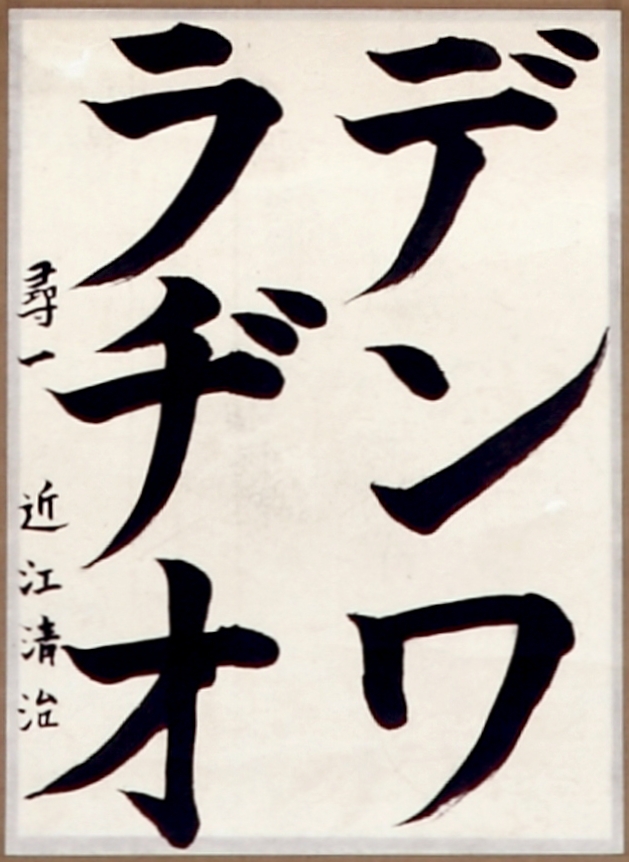 デンワ
ラヂオ
尋一 近江清治